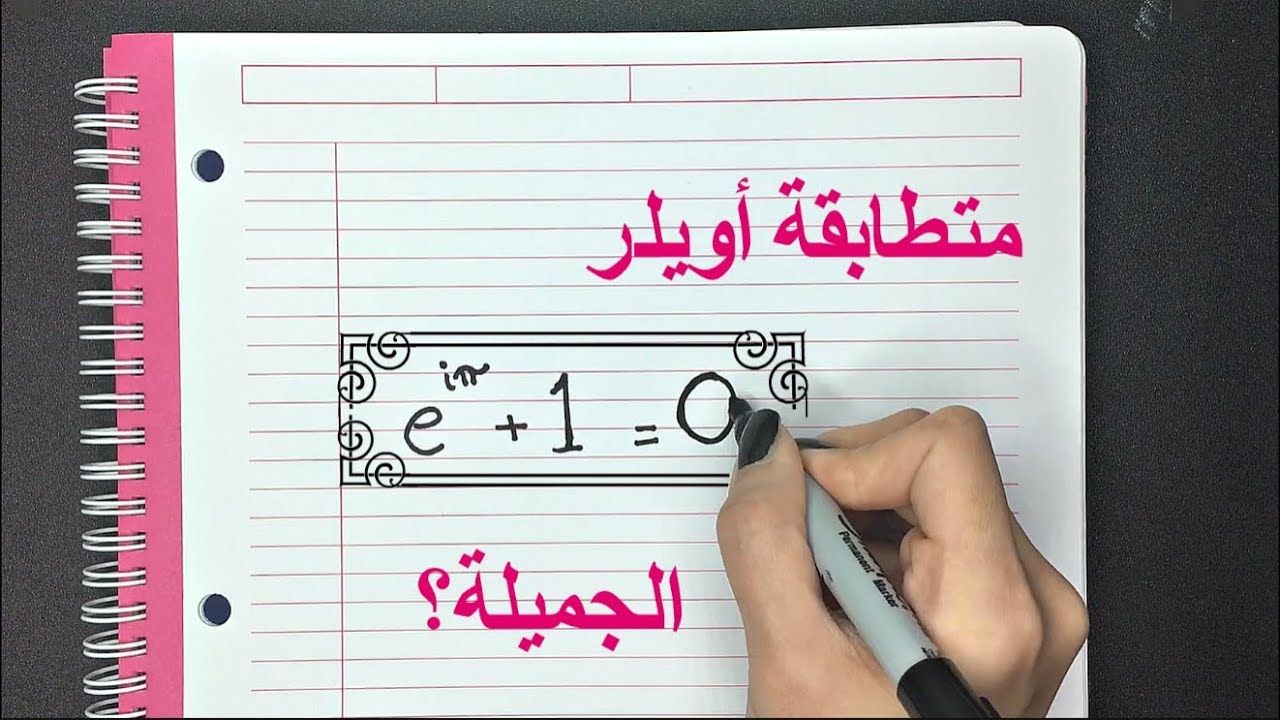 متطابقة أويلر
e^{iπ} + 1 = 0
الجميلة؟
Permanent Marker